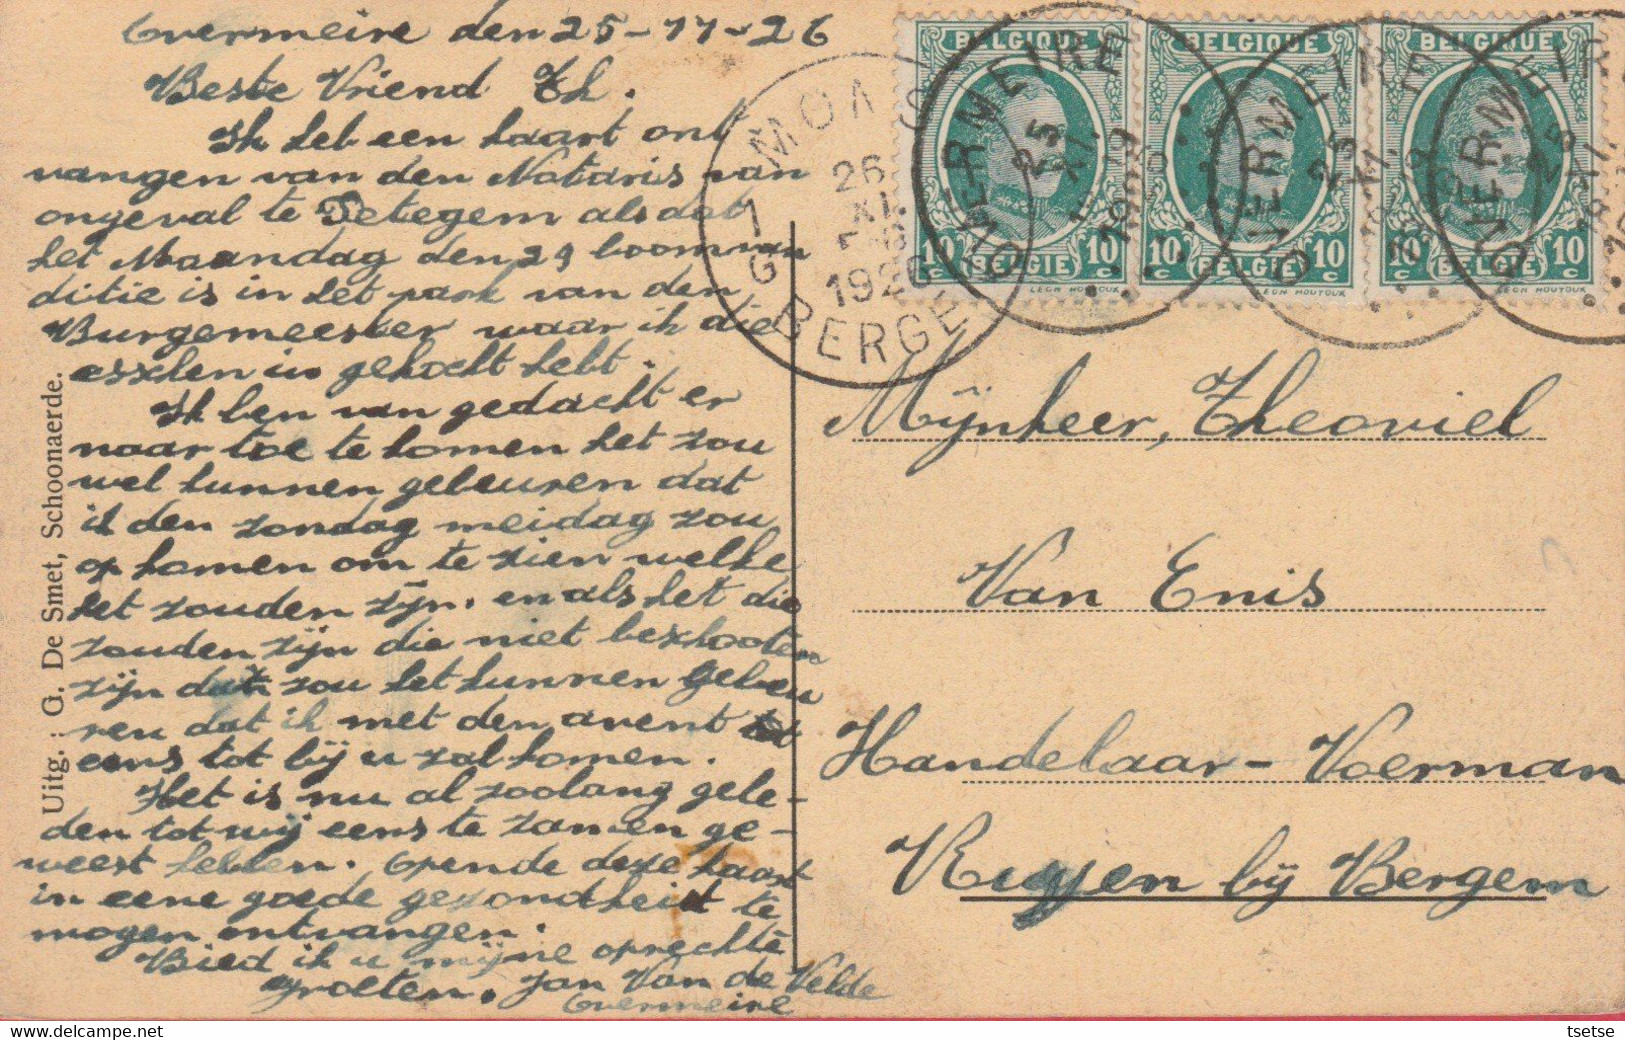 Overmeire den 25-11-26
Beste Vriend Th.
Ik heb een kaart ont
vangen van den Notaris van
ongeval te Petegem als dat
het Maandag den 29 boomvan
ditie is in het park van den
Burgemeester waar ik die
esschen in gekocht hebt.
Ik ben van gedacht er
naar toe te komen het zou
wel kunnen gebeuren dat
ik den zondag meidag zou
op komen om te zien welke
het zouden zijn. en als het die
zouden zijn die niet beschooten
zijn dat zou het kunnen gebeu
ren dat ik met den avent tot
eens tot bij u zal komen.
Het is nu al zoolang gele-
den tot wij eens te zamen ge-
weest hebben. Opende deze kaart
in eene goede gezondheid te
mogen ontvangen.
Bied ik u mijne oprechte
groeten. Jan Van de Velde
Overmeire
Uitg. : G. De Smet, Schoonaerde.
MONS
1 G
26
XI
1926
BERGEN
BELGIQUE
10 c BELGIE 10 c
LEON HOUYOUX
BELGIQUE
10 c BELGIE 10 c
LEON HOUYOUX
BELGIQUE
10 c BELGIE 10 c
LEON HOUYOUX
OVERMEIRE
25
XI
OVERMEIRE
25
XI
OVERMEIRE
25
XI
Mijnheer, Theoviel
Van Enis
Handelaar - Voerman
bij Bergem
tsetse